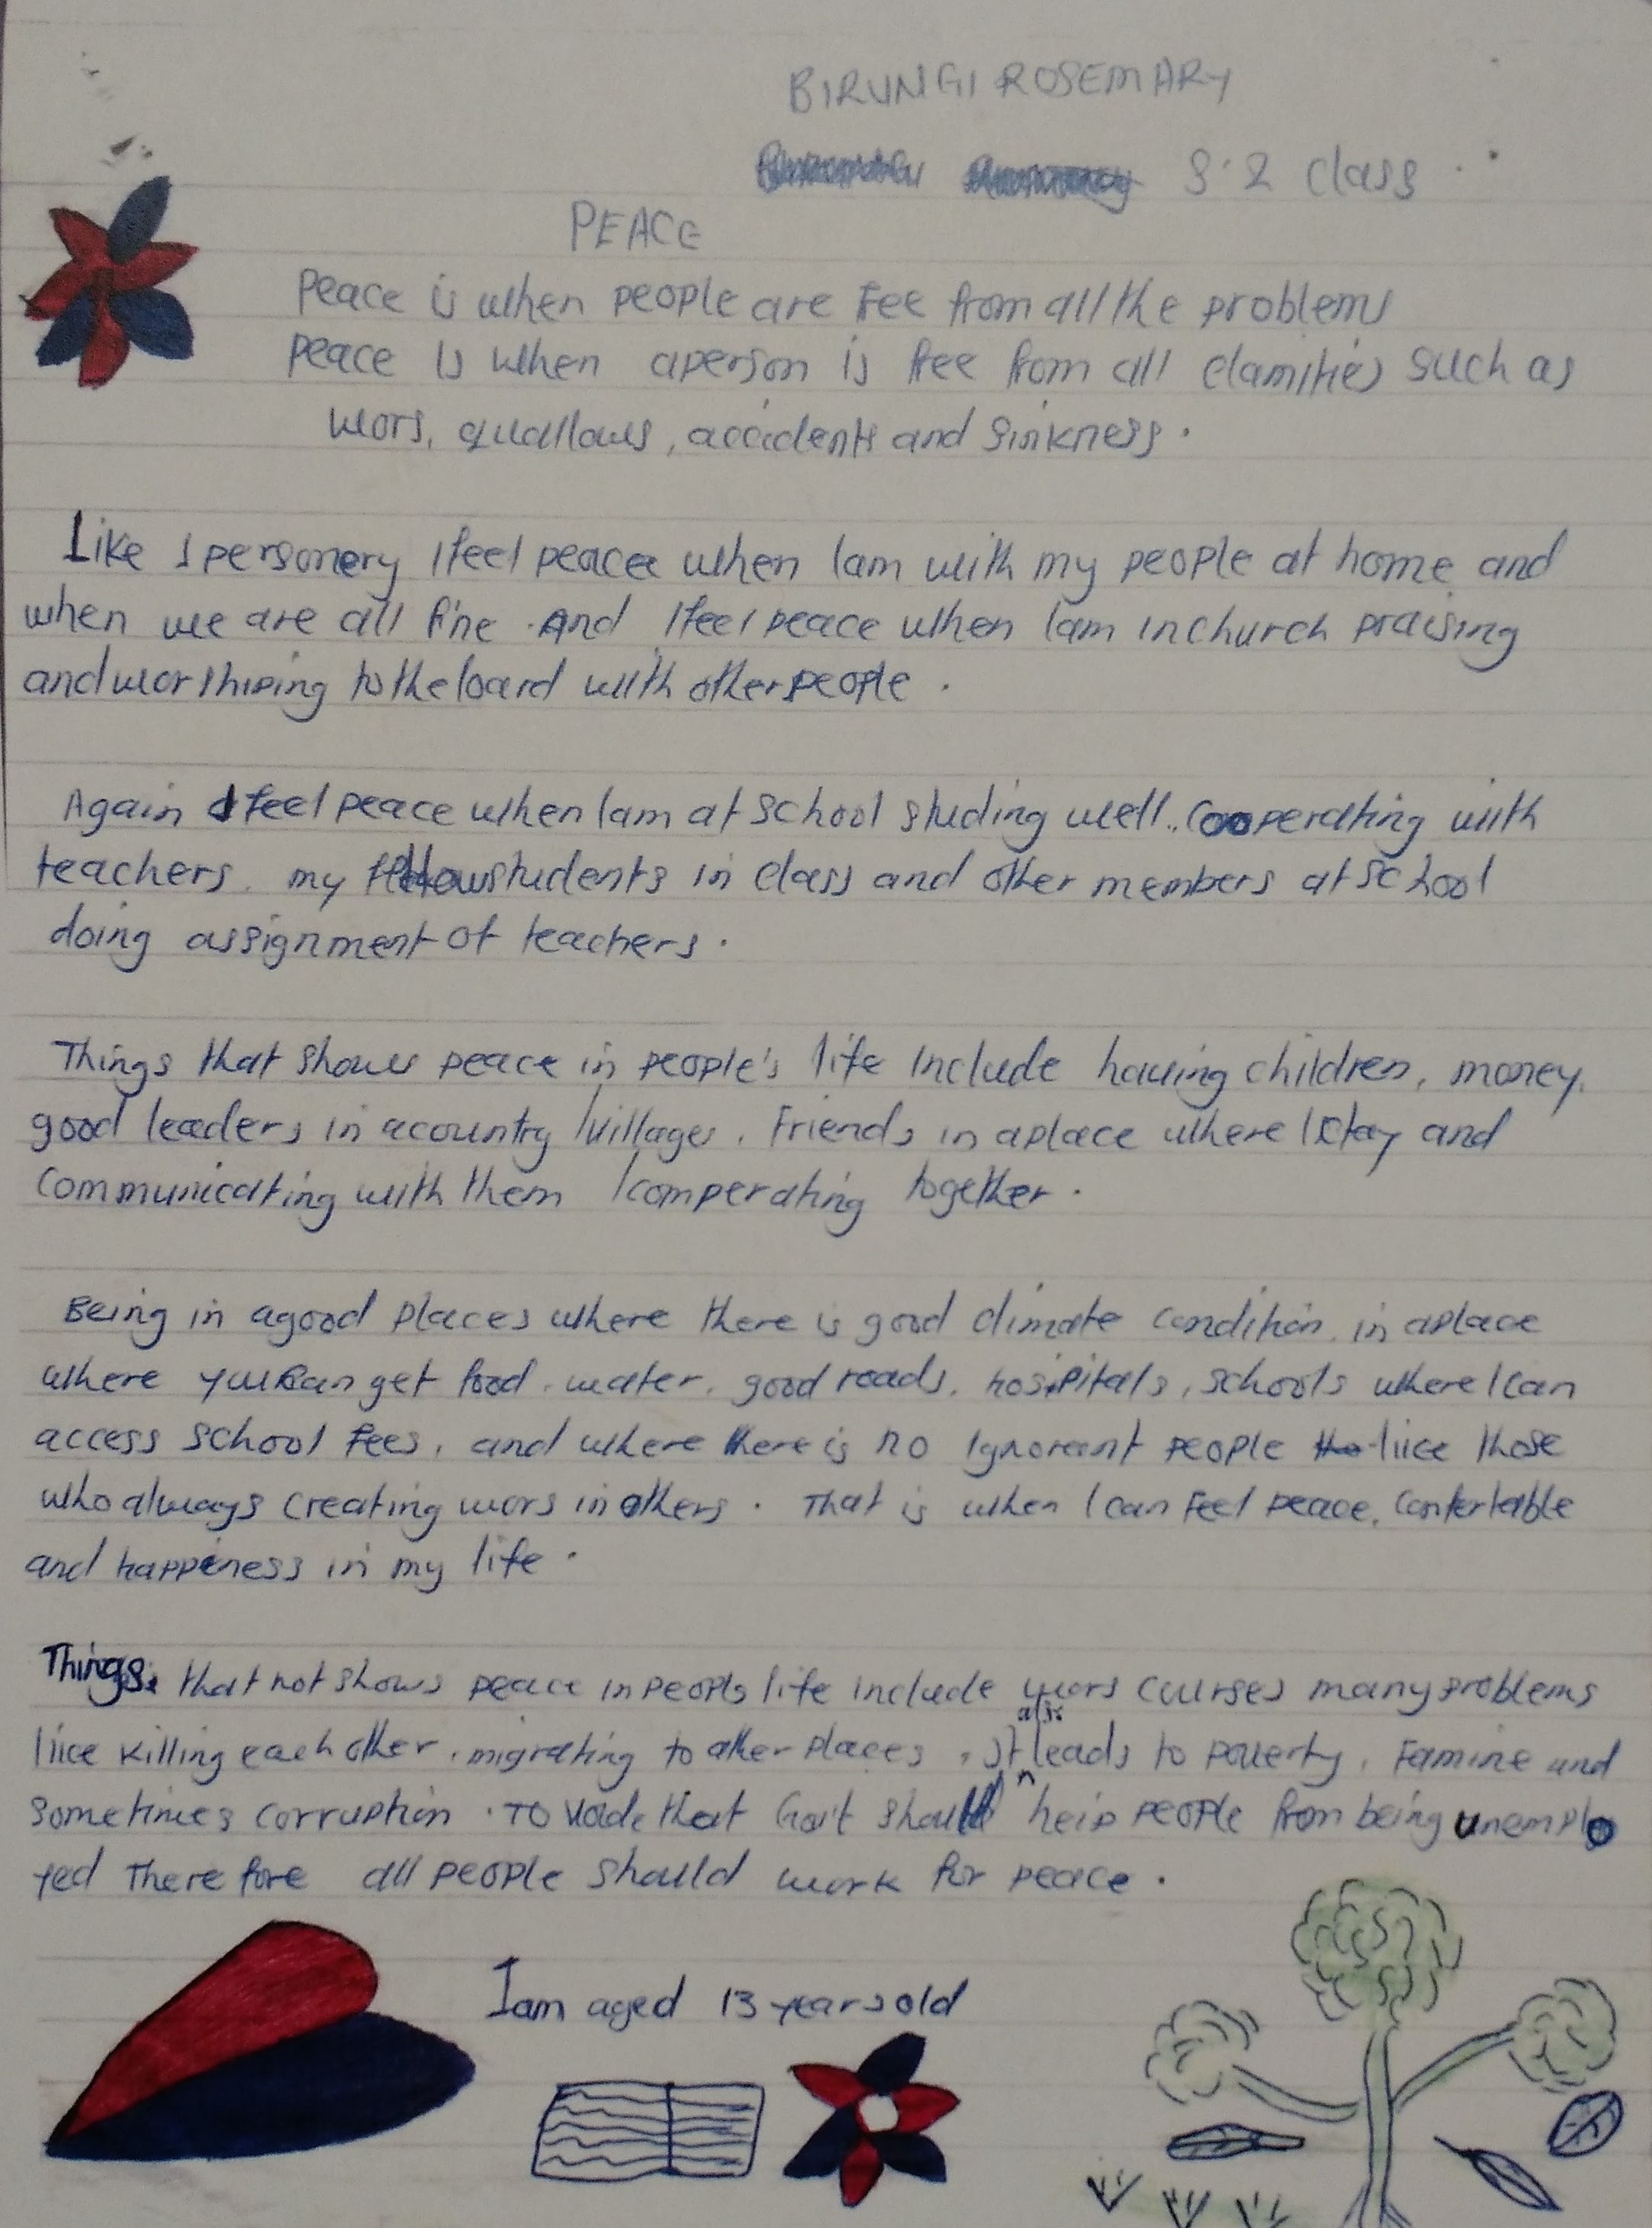 BIRUNGI ROSEMARY
S.2 class
PEACE
Peace is when people are Fee from all the problems
peace is when aperson is free from all clamities such as
wors, quallows, accidents and sinkness.
Like I personery I feel peace when Iam with my people at home and
when we are all fine. And I feel peace when Iam in church praising
and worthiping to the loard with other people.
Again I feel peace when Iam at school studing well. Cooperating with
teachers. my fellow students in class and other members at school
doing assignment of teachers.
Things that shows peace in people's life include having children, money,
good leaders in acountry /villages. Friends in aplace where I stay and
communicating with them /comperating together.
Being in agood places where there is good climate condition. in aplace
where you can get food. water. good roads. hospitals, schools where I can
access school fees, and where there is no Ignorant people like those
who always creating wors in others. That is when I can Feel peace, Confertable
and happiness in my life.
Things that not shows peace in people life include wors courses many problems
like killing each other, migrating to other places, It also leads to poverty, Famine and
sometimes corruption. To voide that Gov't should help people from being unemplo
yed There fore all people should work for peace.
Iam aged 13 years old